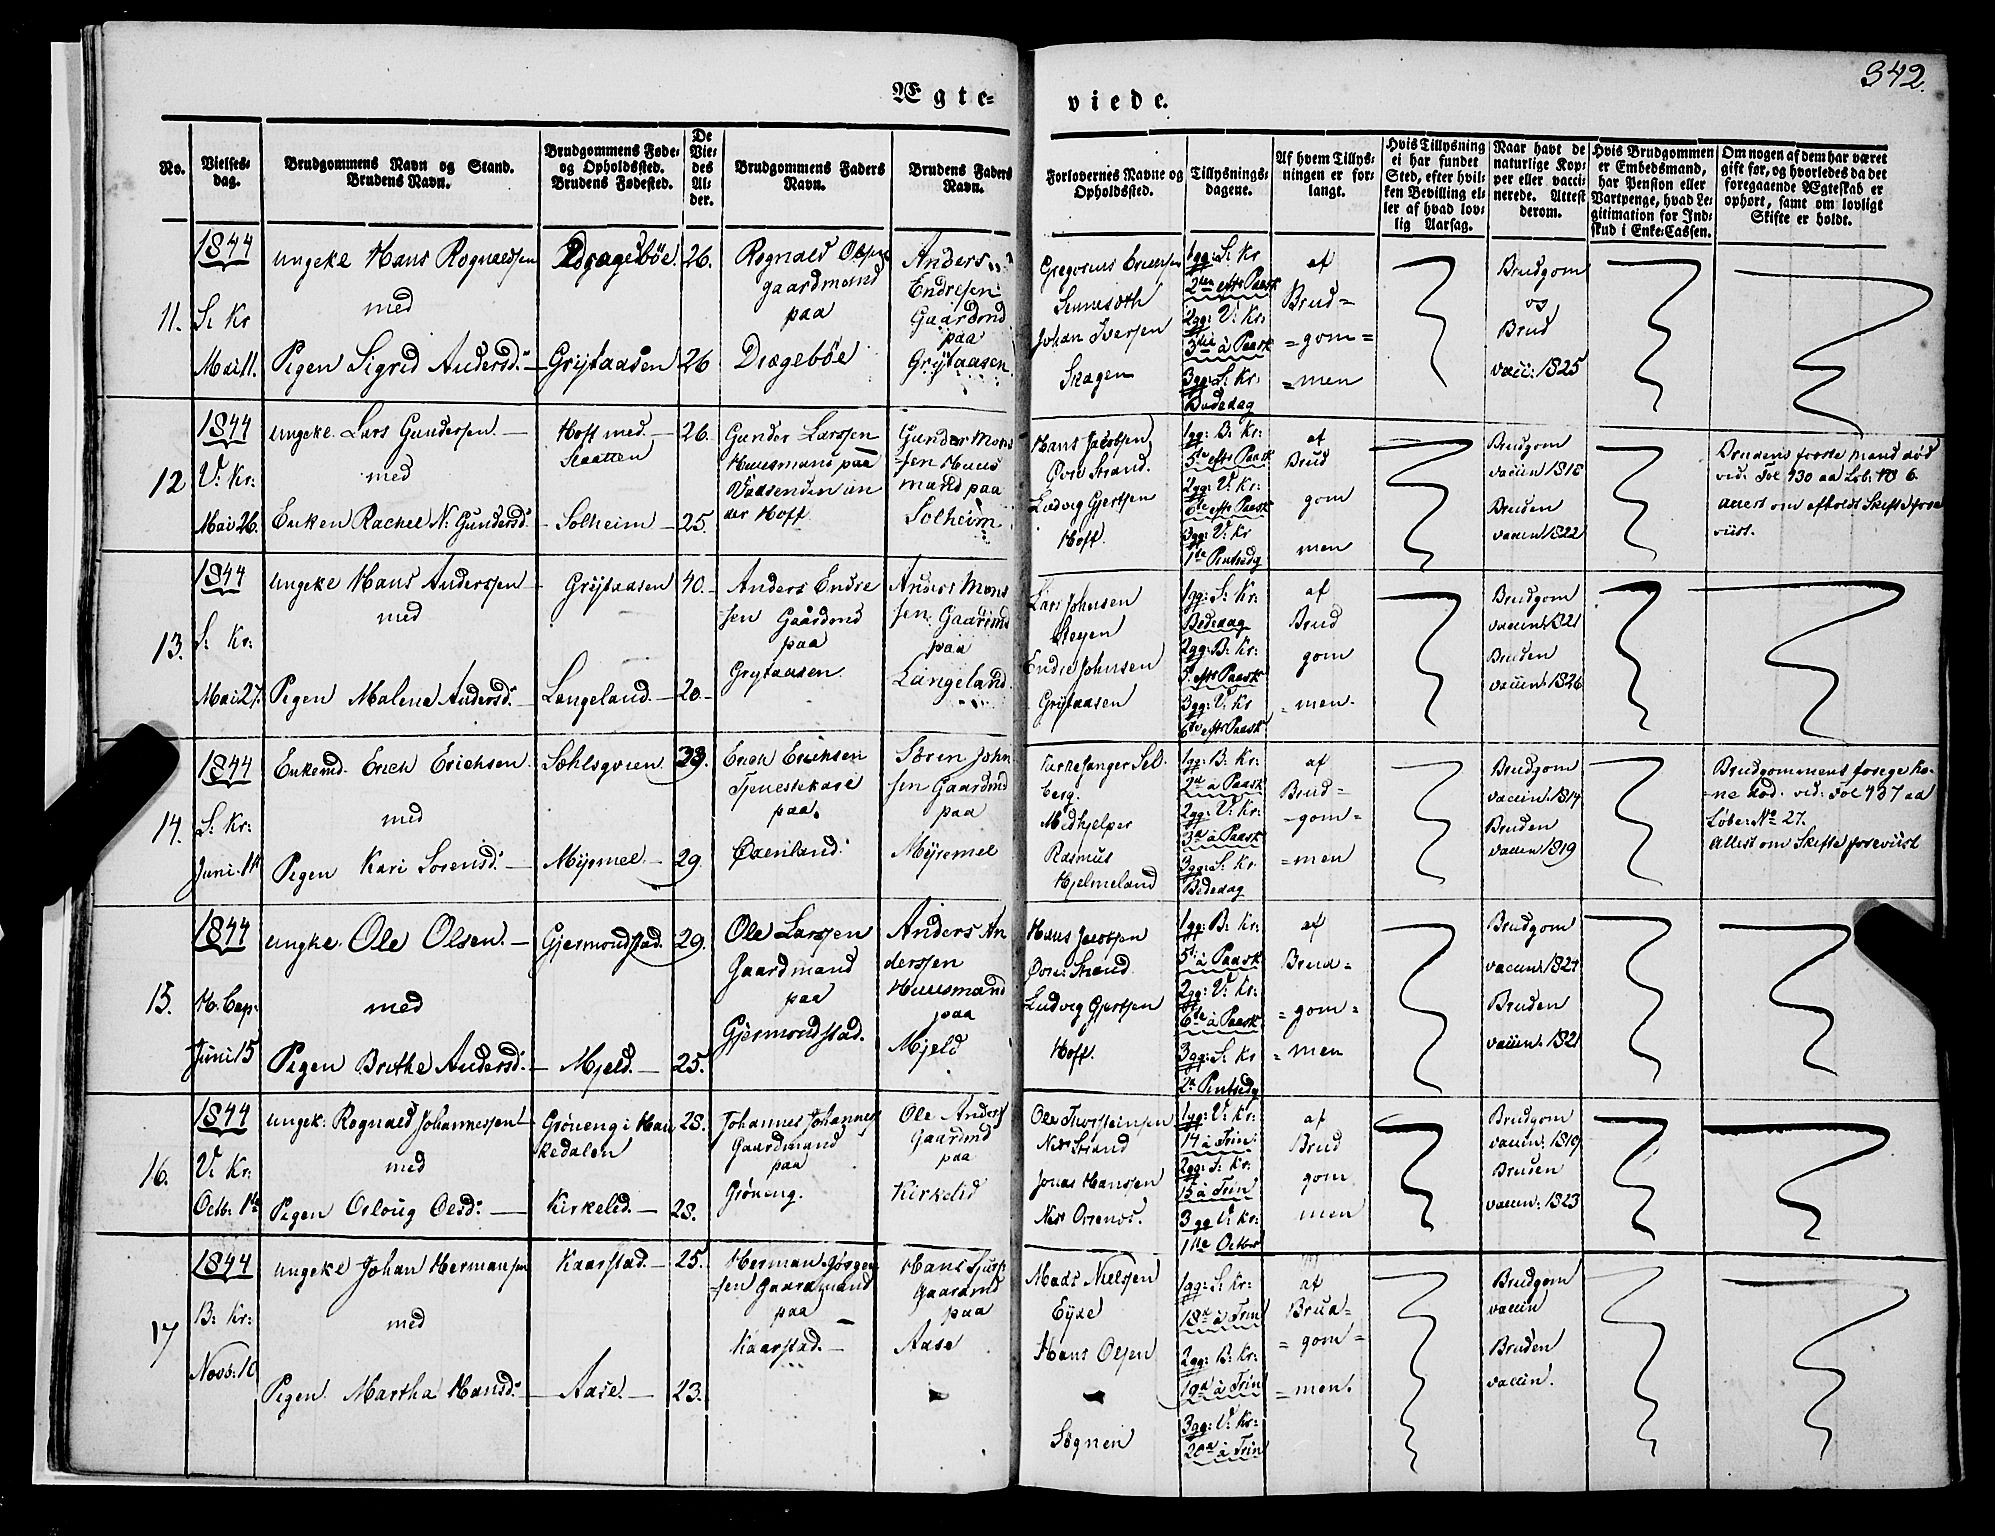 Ægte-
viede.
342.
No.
Vielses-
dag.
Brudgommens Navn og Stand.
Brudens Navn.
Brudgommens Føde-
og Opholdssted.
Brudens Fødested.
De
Vie-
des
Al-
der.
Brudgommens Faders
Navn.
Brudens Faders
Navn.
Forlovernes Navne og
Opholdssted.
Tillysnings-
dagene.
Af hvem Tillys-
ningen er for-
langt.
Hvis Tillysning
ei har fundet
Sted, efter hvil-
ken Bevilling el-
ler af hvad lov-
lig Aarsag.
Naar havt de
naturlige Kop-
per eller vacci-
nerede. Attest
derom.
Hvis Brudgommen
er Embedsmand,
har Pension eller
Vartpenge, hvad Le-
gitimation for Ind-
skud i Enke-Cassen.
Om nogen af dem har været
gift før, og hvorledes da det
foregaaende Ægteskab er
ophørt, samt om lovligt
Skifte er holdt.
11.
1844
S. Kr
Mai 11.
ungeke Hans Rognaldsen
med
Pigen Sigrid Andersd:
Drægebøe
Grytaasen
26.
26
Rognald Olsen
gaardmand
paa
Drægebøe
Anders
Endresen
Gaardmd
paa
Grytaasen
Gregorius
Johan Iversen
Skagen
1gg: S. Kr
2den eftr Paask
2gg: V: Kr:
3die à Paask
3gg: S. Kr:
Bededag
af
Brud=
=gom=
=men
Brudgom
og
Brud
vacc: 1825
12
1844
V. Kr:
Mai 26.
ungeke. Lars Gundersen.
med
Enken Rachel N. Gundersd:
Hoff med.
Solheim
26.
25.
Gunder Larssen
Huusmand paa
un
der Hoff
Gunder Mons
sen Huus
mand paa
Solheim
Hans Jacobsen
Øvre Strand.
Ludvig Gjertsen
Hoff.
1gg: B. Kr:
5te eftr Paask
2gg: V. Kr:
6te eftr Paask
3gg: V. Kr
1ste Pintsedg
af
Brud
gom
men
Brudgom
vaccin 1818
Bruden
vaccin 1822
Brudens første Mand død
vid: Fol 430 aa Lob: No 6.
Attest om afholdt Skifte fore
viist.
13.
1844
S. Kr:
Mai 27.
ungeke Hans Anderssen
med
Pigen Malene Andersd:
Grytaasen
Langeland.
40.
20
Anders Endre
sen Gaardmd
paa
Grytaasen.
Anders Mons
sen. Gaardmd
paa
Langeland.
Lars Johnsen
Steyen
Endre Johnsen
Grytaasen
1gg: S. Kr:
Bededag
2gg: B. Kr:
5. eftr Paask
3gg: V. Kr
6te eftr Paask
af
Brud
gom
=men.
Brudgom
vaccin: 1821
Bruden
vaccin: 1826
14.
1844
S. Kr:
Juni. 1st
Enkemd. Erich Erichsen
med
Pigen Kari Sorensd:
Myrmel.
29.
Erich Erichsen
Tjenestekarl
paa.
Søren John
sen Gaardmd
paa
Myrmel
Kirkesanger Sel
berg.
Medhjelper
Rasmus
Hjelmeland
1gg: B. Kr:
2d à Paask
2gg: V. Kr:
3d à Paask
3gg: S. Kr
Bededag
af
Brud=
=gom=
=men
Brudgom
vaccin: 1814
Bruden
vaccin 1819
Brudgommens forrige Ko-
ne død. vid: Fol 437 aa
Løbe: No 27.
Attest om Skifte foreviist
15.
1844
H. Cap:
Juni 15
ungke. Ole Olsen.
med
Pigen Brithe Andersd:
Gjermondstad.
Mjeld.
29.
25.
Ole Larssen
Gaardmand
paa
Gjermondstad.
Anders An
derssen
Huusmand
paa
Mjeld
Hans Jacobsen
Øvre Strand
Ludvig Gjertsen
Hoff.
1gg: B. Kr:
5te à Paask
2gg: V. Kr:
6te à Paask
3gg: S. Kr
2n Pintsedg
af
Brud=
=gom=
=men
Brudgom
vaccin: 1821
Bruden
vaccin: 1821
16.
1844
V. Kr:
Octb. 1ste
ungek: Rognald Johannessen
med
Pigen Orloug Olsd:
Grøneng i Hau
kedalen
Kirkelid.
28.
28.
Johannes Johannes
Gaardmand
paa
Grøneng.
Ole Anders
Gaardmd
paa
Kirkelid
Ole Thorsteinsen
Nedr Strand
Jonas Hanssen
1gg: V. Kr:
14 à Trin:
2gg: S. Kr:
15 à Trin
3gg V. Kr:
1ste Octbr
af
Brud
gom
men
Brudgom
vaccin: 1819
Bruden
vaccin: 1823
17
1844
B. Kr:
Novb. 10
ungeke Johan Hermansen
med
Pigen. Martha Hansd:
Kaarstad.
Aase.
25.
23.
Herman Jørgen
sen Gaardmand
paa
Kaarstad.
Hans
Gaardmd
paa
Aase
Mads Nielsen
Eyde
Hans Olsen
Sognen
1gg: S. Kr:
18d à Trin
2gg: B. Kr:
19d à Trin
3gg: V. Kr:
20d à Trin
af
Brud=
=gom=
=men.
Brudgom
vaccin
Bruden
vaccin.